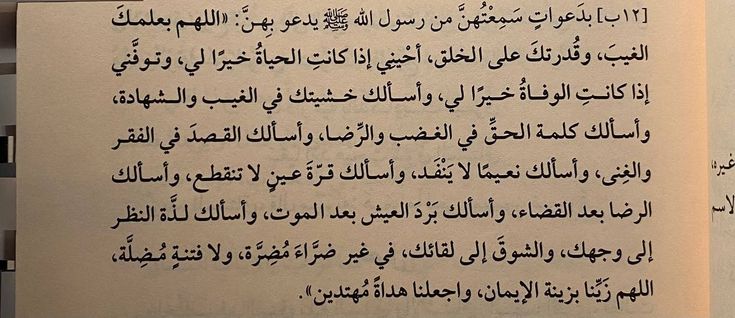 [١٢ب] بدَعواتٍ سَمِعْتُهنَّ من رسول الله ﷺ يدعو بِهنَّ: «اللهم بعلمكَ
الغيبَ، وقُدرتكَ على الخلق، أحْيِني إذا كانتِ الحياةُ خيرًا لي، وتوفَّني
إذا كانتِ الوفاةُ خيرًا لي، وأسألك خشيتك في الغيب والشهادة،
وأسألك كلمة الحقِّ في الغضب والرِّضا، وأسألك القصدَ في الفقر
والغِنى، وأسألك نعيمًا لا يَنْفَد، وأسألك قرّةَ عينٍ لا تنقطع، وأسألك
الرضا بعد القضاء، وأسألك بَرْدَ العيش بعد الموت، وأسألك لذَّة النظر
إلى وجهك، والشوقَ إلى لقائك، في غير ضرَّاءَ مُضِرَّة، ولا فتنةٍ مُضِلَّة،
اللهم زَيِّنا بزينة الإيمان، واجعلنا هداةً مُهتدين».
غيره،
لاسم